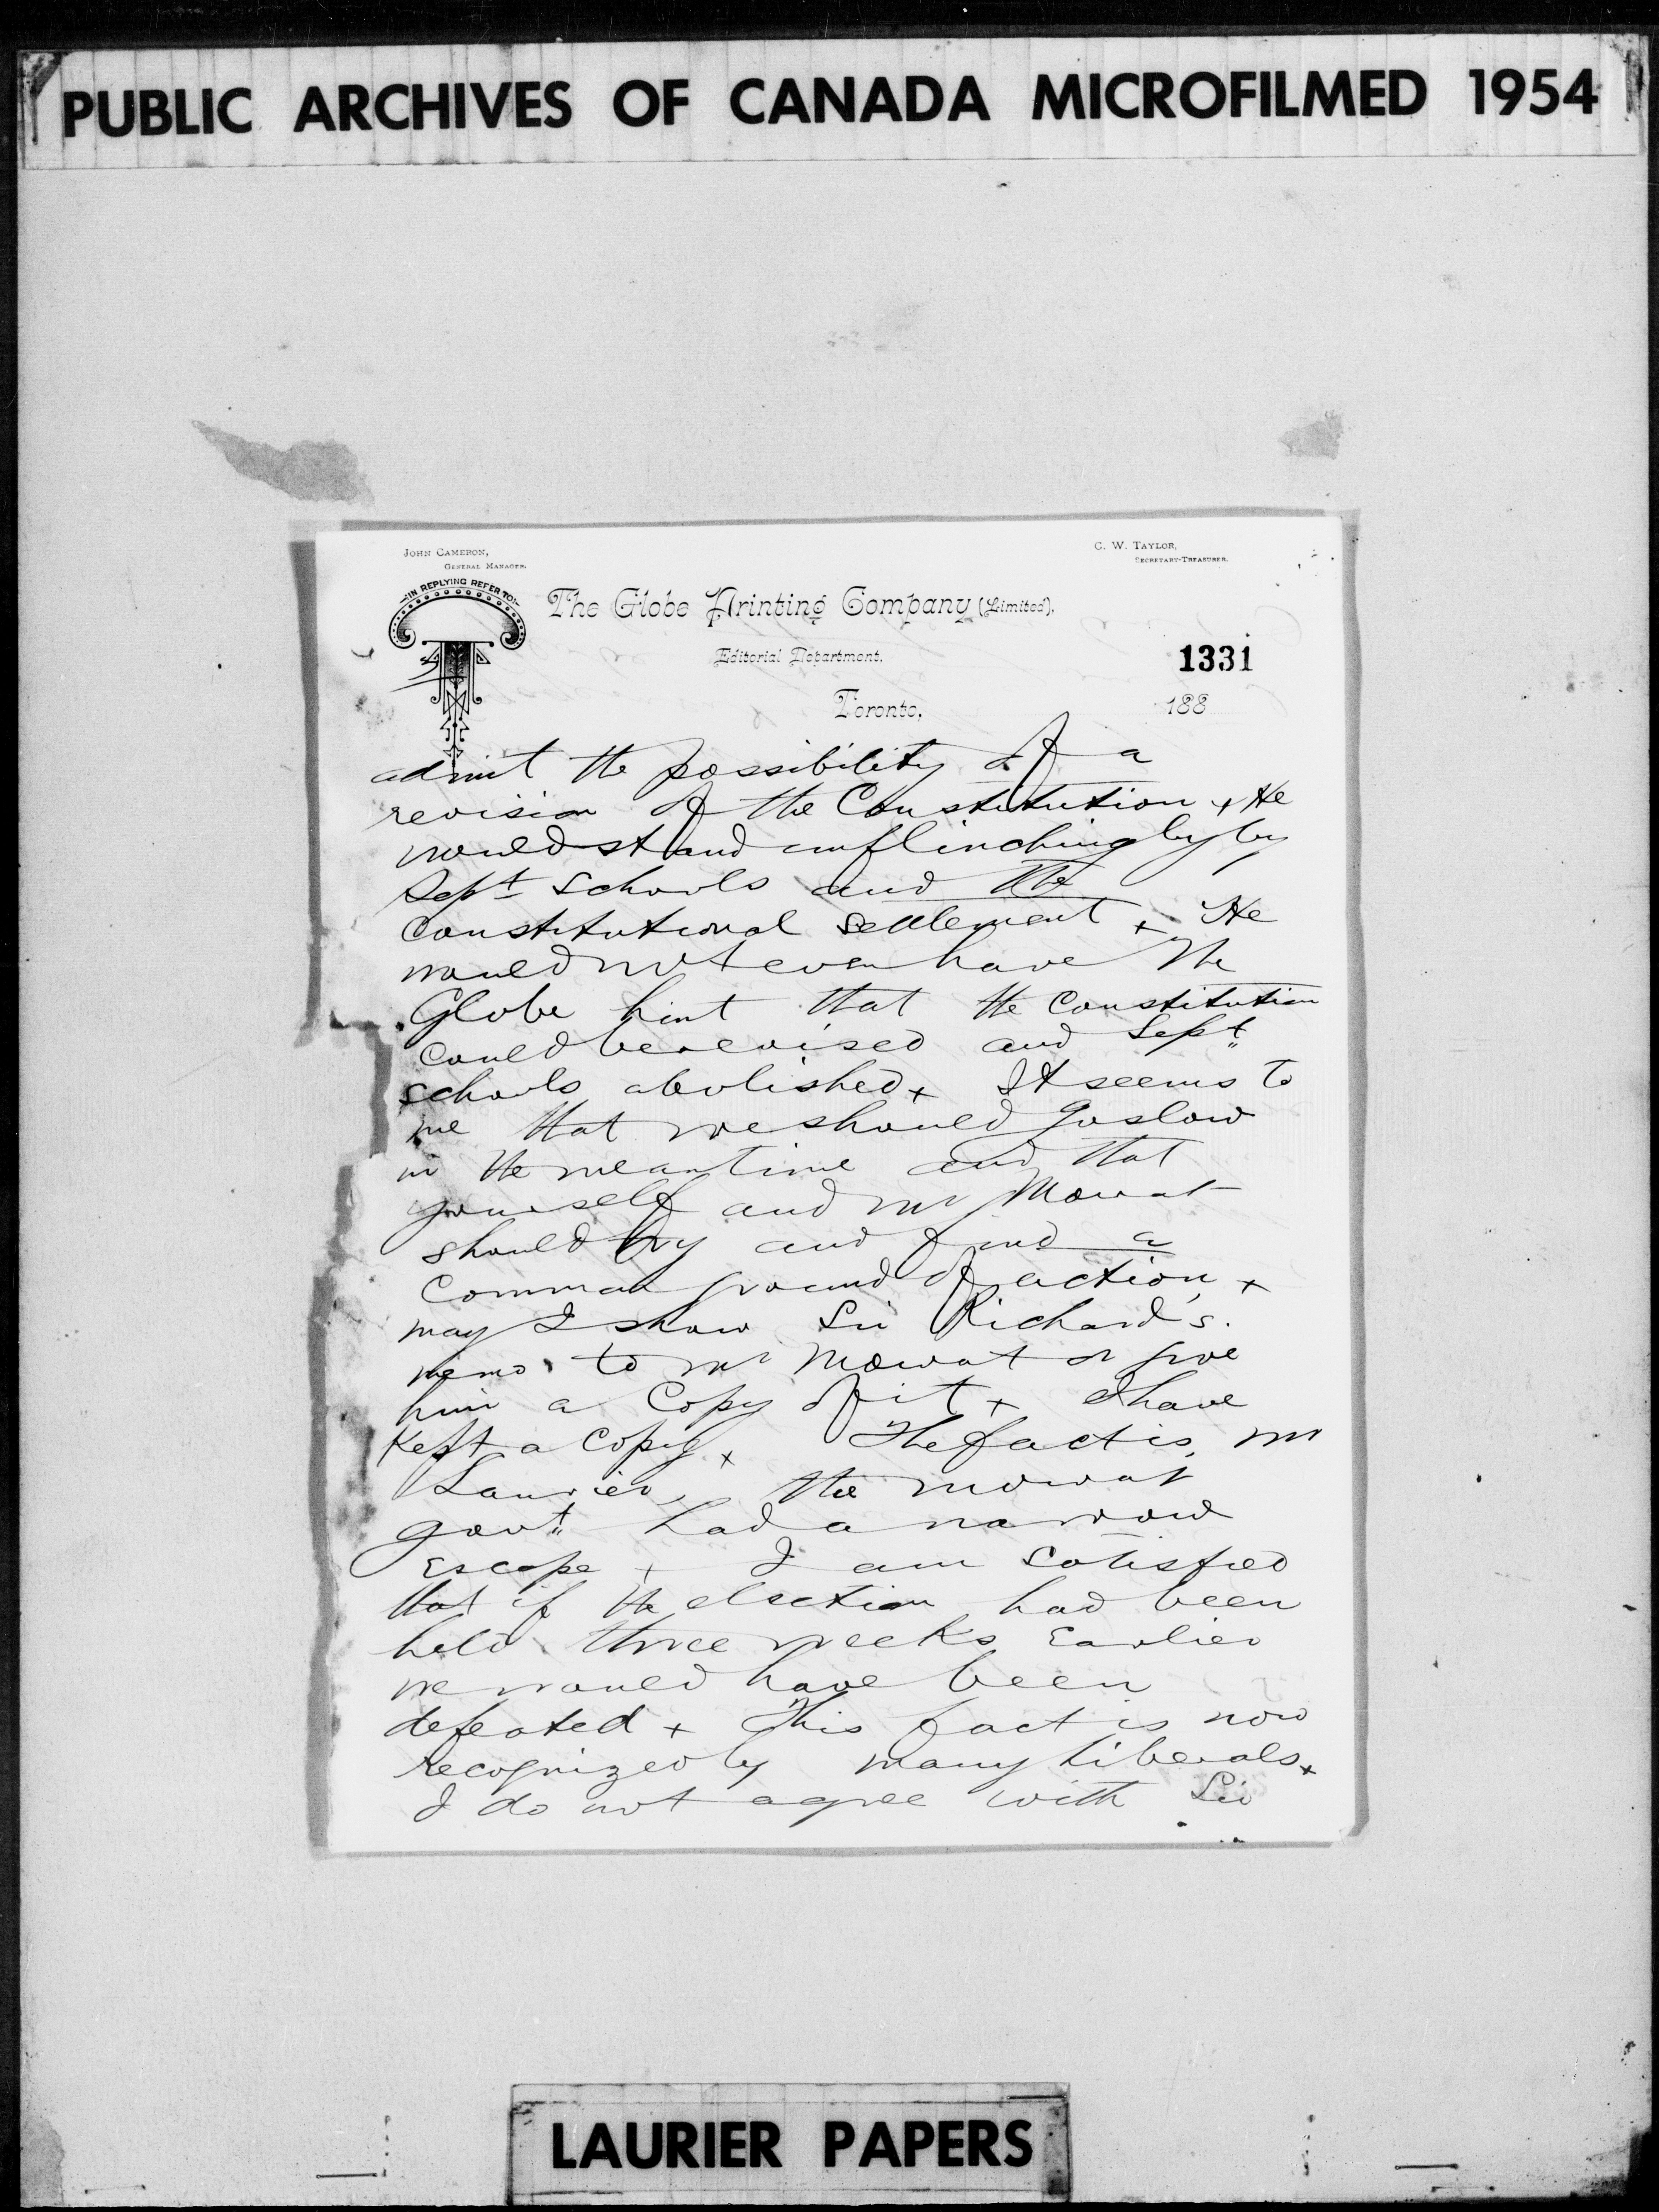 PUBLIC ARCHIVES OF CANADA MICROFILMED 1954
JOHN CAMERON,
GENERAL MANAGER.
C. W. TAYLOR,
SECRETARY-TREASURER.
IN REPLYING REFER TO
The Globe Printing Company (Limited).
Editorial Department.
1331
Toronto, 188
admit the possibility of a
revision of the Constitution + He
would stand unflinchingly by
Sept schools and the
constitutional settlement + He
would not even have the
Globe hint that the Constitution
could be revised and Sept
schools abolished + It seems to
me that we should go slow
in the meantime and that
yourself and Mr Mowat
should try and find a
common ground of action +
may I show Sir Richard's
memo to Mr Mowat or give
him a copy of it + I have
kept a copy + The fact is, Mr
Laurier, the Mowat
govt had a narrow
escape + I am satisfied
that if the election had been
held three weeks earlier
we would have been
defeated + This fact is now
recognized by many Liberals +
I do not agree with Sir
LAURIER PAPERS